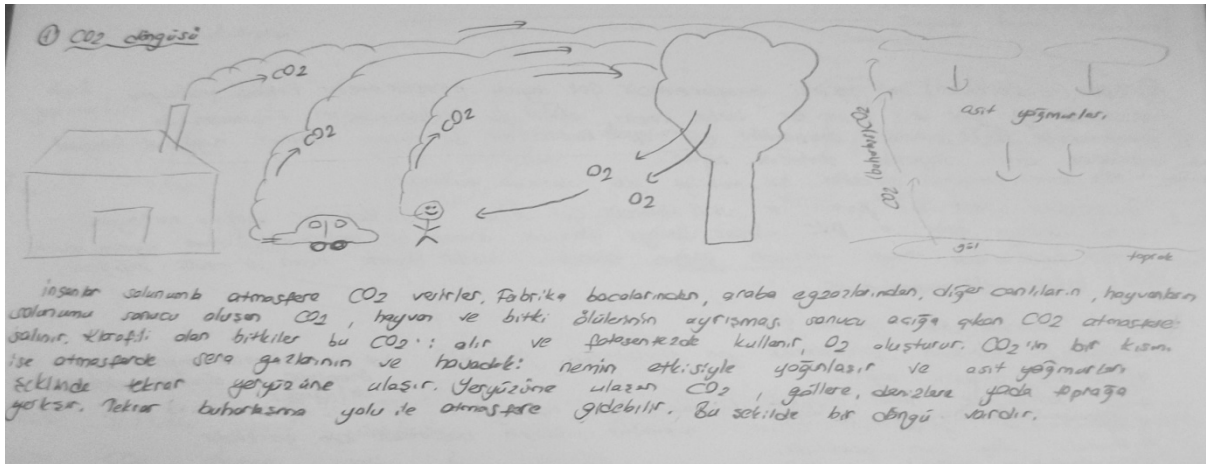 ① CO2 döngüsü
CO2
CO2
CO2
O2
O2
CO2 (buharlaşma)
asit yağmurları
göl
toprak
insanlar solunumla atmosfere CO2 verirler. Fabrika bacalarından, araba egzozlarından, diğer canlıların, hayvanların
solunumu sonucu oluşan CO2, hayvan ve bitki ölülerinin ayrışması sonucu açığa çıkan CO2 atmosfere
salınır. klrofilli olan bitkiler bu CO2'i alır ve fotosentezde kullanır, O2 oluşturur. CO2'in bir kısmı
ise atmosferde sera gazlarının ve havadaki nemin etkisiyle yoğunlaşır ve asit yağmurları
şeklinde tekrar yeryüzüne ulaşır. Yeryüzüne ulaşan CO2, göllere, denizlere yada toprağa
Tekrar buharlaşma yolu ile atmosfere gidebilir. Bu şekilde bir döngü vardır.